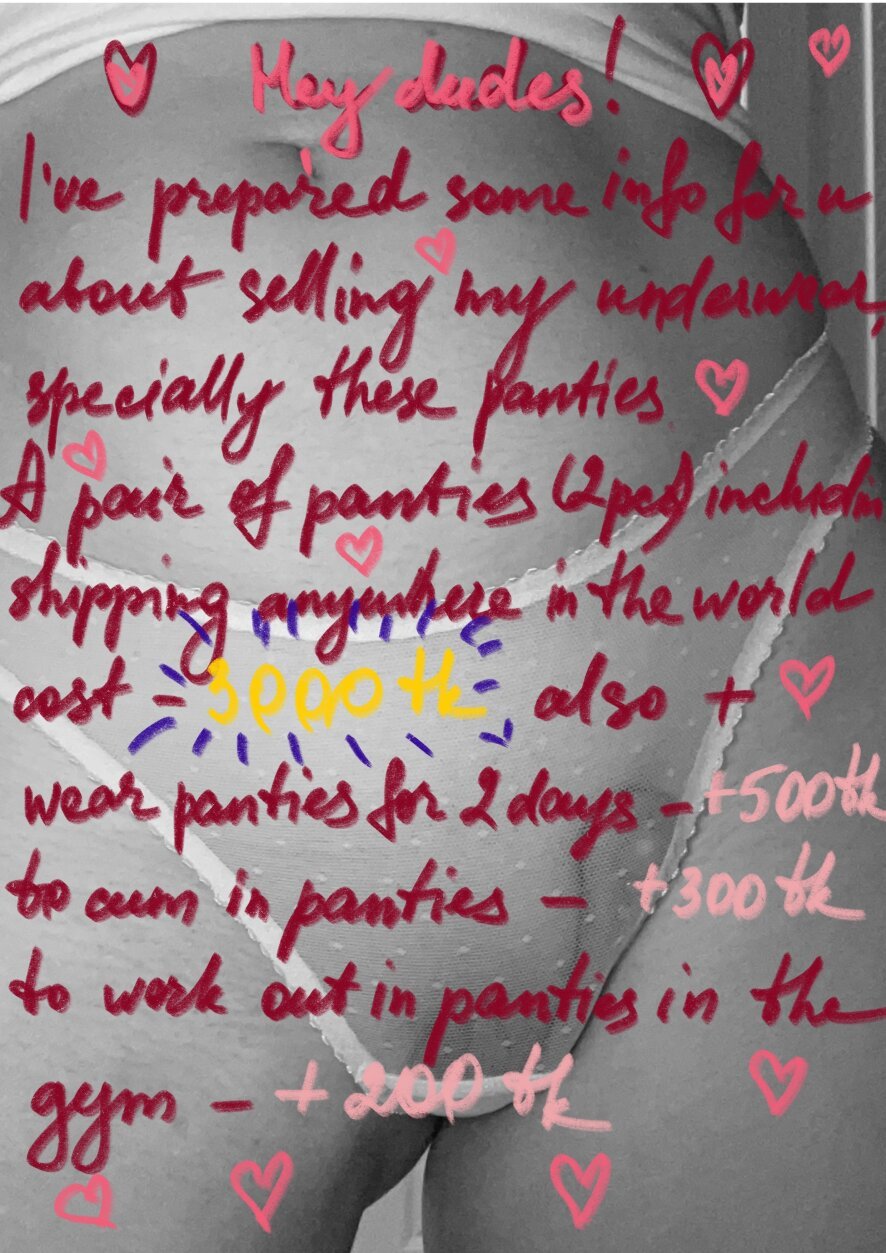 Hey dudes!
I've prepared some info for u
about selling my underwear,
specially these panties
A pair of panties (2pcs) includin
shipping anywhere in the world
cost - 3000 tk also +
wear panties for 2 days - +500tk
to cum in panties - +300 tk
to work out in panties in the
gym - + 200 tk